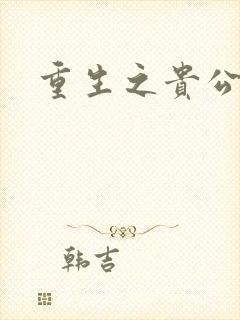 重生之貴公
韩吉